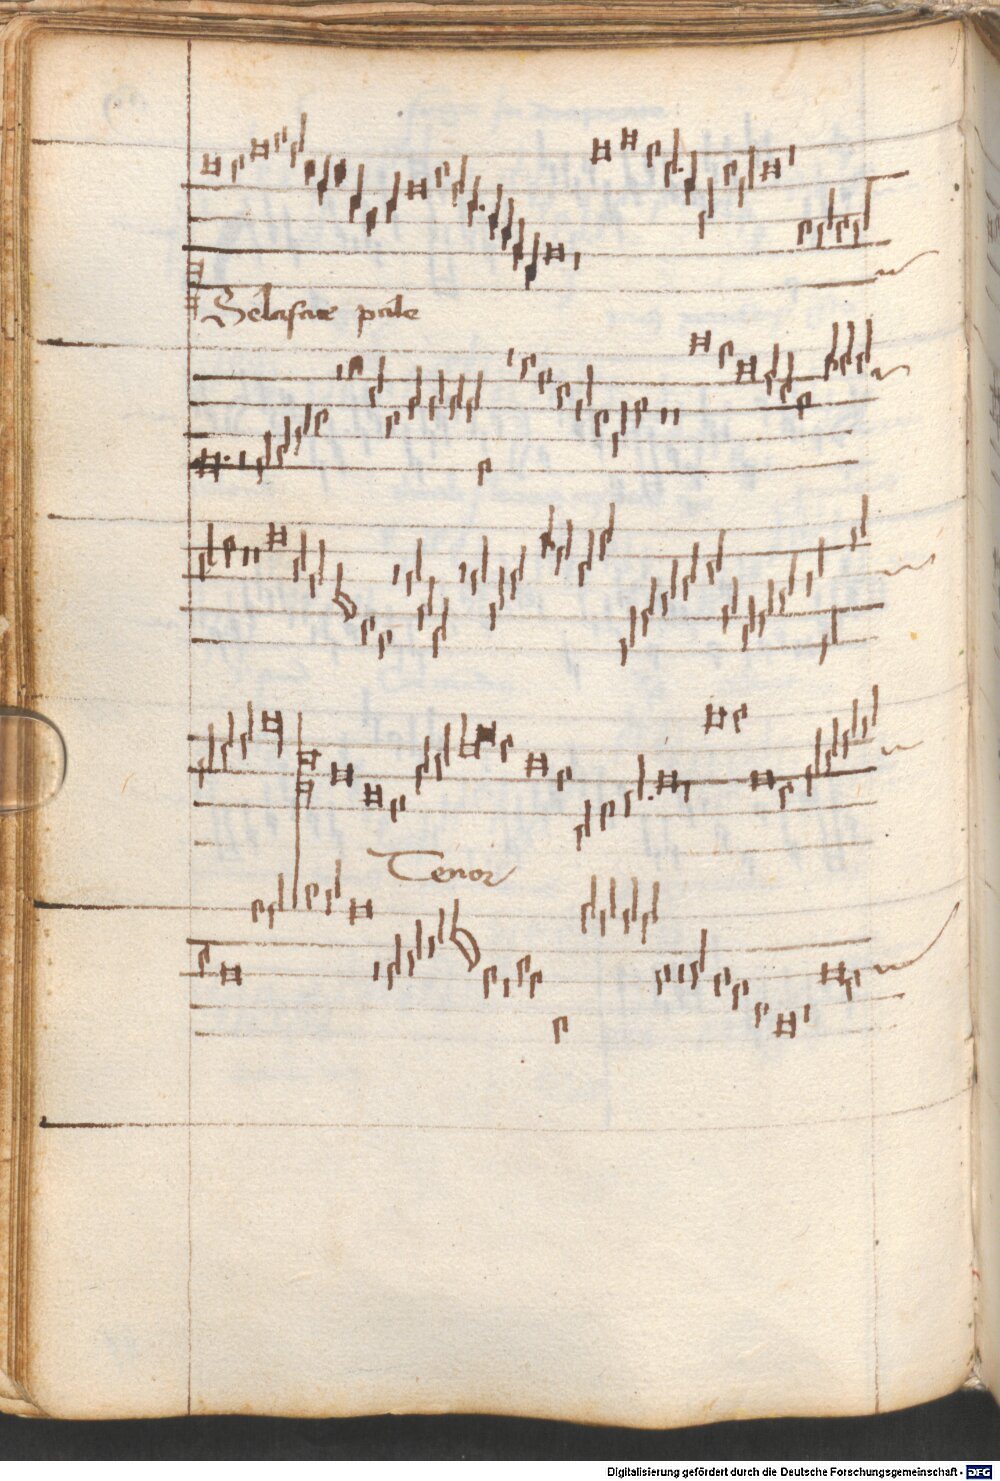 Selafare pale
Tenor
Digitalisierung gefördert durch die Deutsche Forschungsgemeinschaft - DFG